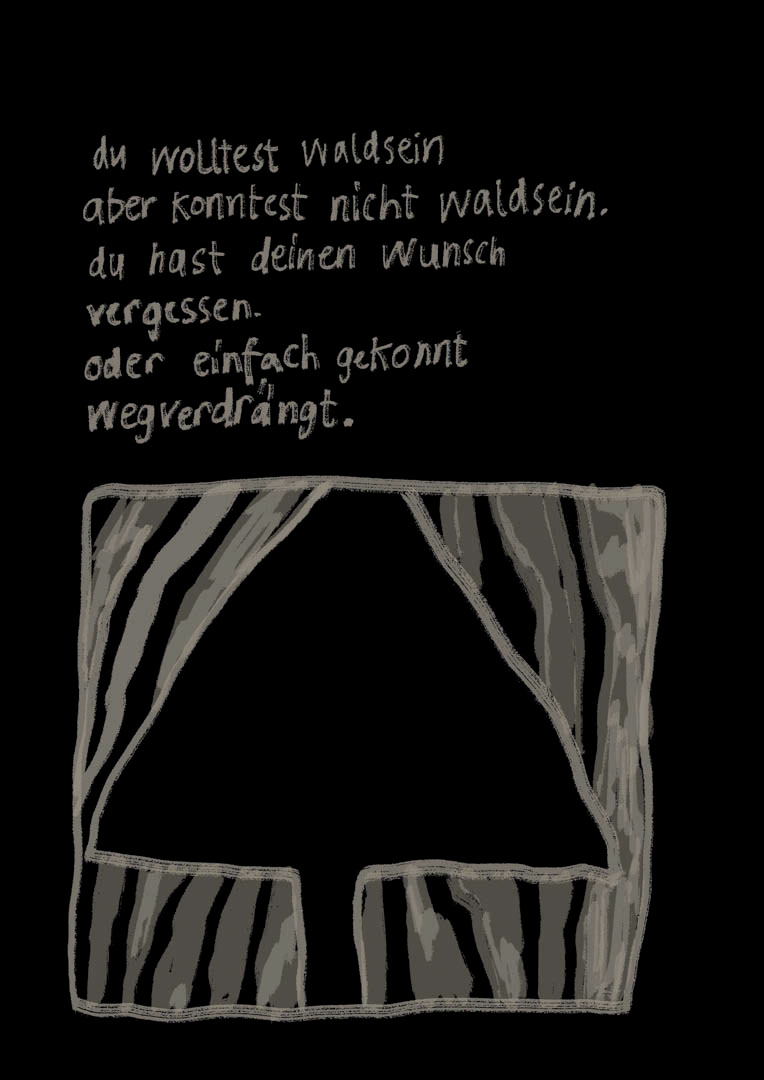 du wolltest waldsein
aber konntest nicht waldsein.
du hast deinen wunsch
vergessen.
oder einfach gekonnt
wegverdrängt.